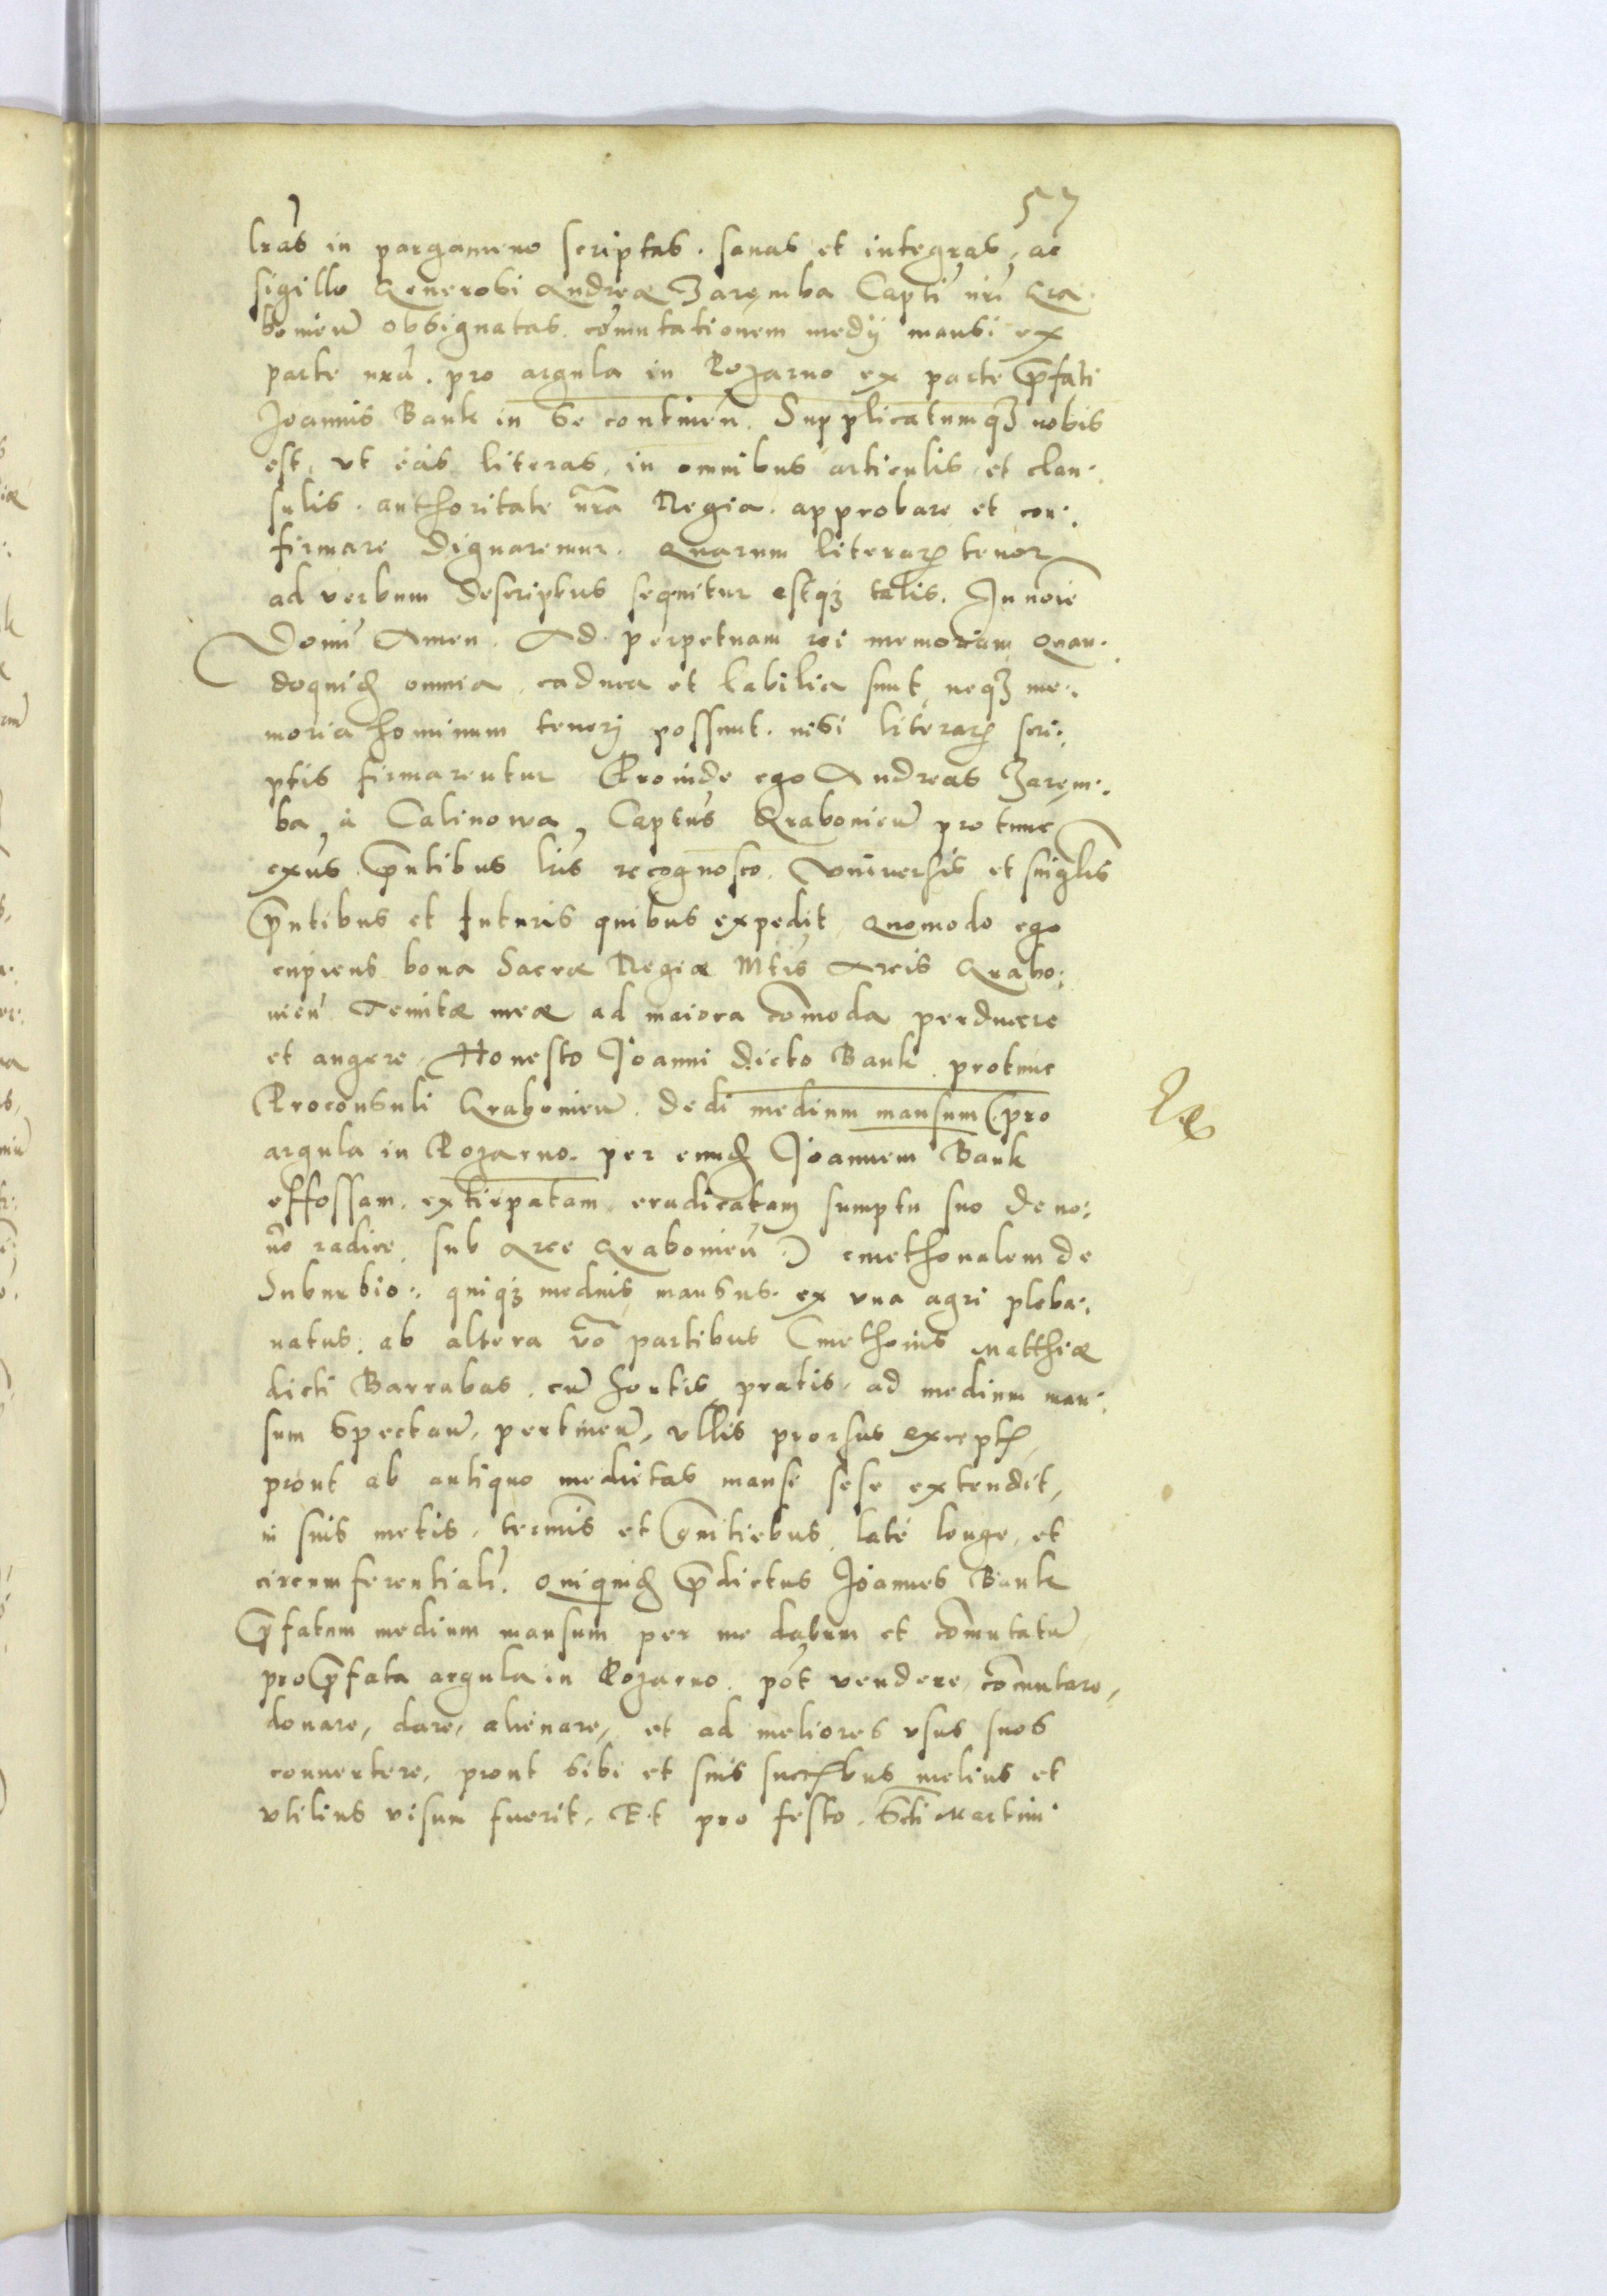 57
lrās in pargameno scriptas. sanas et integras, ac
sigillo Generosi Andreæ Zaręmba Capti nri Gra
bonieñ obsignatas. comutationem medij mansi ex
parte nrā. pro argula in Rogarno ex parte pfati
Joannis Bank in se continen. Supplicatumq3 nobis
est, vt eas literas, in omnibus articulis, et clau:
sulis. authoritate nra Regia. approbare et con:
firmare dignaremur. Quarum literar tenor
ad verbum descriptus sequitur estq3 talis. In noie
Domi Amen. Ad perpetuam rei memoriam Quan:
doquid omnia, caduca et labilia sunt, neq3 me:
moria hominum teneri possunt. nisi literar scri:
ptis firmarentur Proinde ego Andreas Zaręm:
ba, à Calinowa, Captus Grabonieñ pro tunc
exñs pntibus lris recognosco. Vniuersis et singlis
pntibus et futuris quibus expedit, Quomodo ego
cupiens bona Sacræ Regiæ Mtis Arcis Grabo:
nieñ Tenutæ meæ ad maiora comoda perducere
et augere, Honesto Joanni dicto Bank protunc
Proconsuli Grabonieñ. dedi medium mansum (pro
argula in Rogarno. per eund Joannem Bank
effossam, extirpatam, eradicatam sumptu suo de no:
uo radice, sub Arce Grabonieñ) cmethonalem de
Suburbio: quiq3 medius mansus. ex vna agri pleba:
natus. ab altera vo partibus Cmethonis Matthiæ
dicti Barrabas. cū hortis pratis. ad medium man:
sum spectañ, pertineñ, vllis prorsus except,
prout ab antiquo medietas mansi sese extendit,
in suis metis, termis et gnitiebus, late longe, et
circumferentialr. Quiquid pdictus Joannes Bank
pfatum medium mansum per me datum et comutatū
pro pfata argula in Rogarno. pot vendere, comutare,
donare, dare, alienare, et ad meliores vsus suos
conuertere, prout sibi et suis succbus melius et
vtilius visum fuerit, Et pro festo. Scti Martini